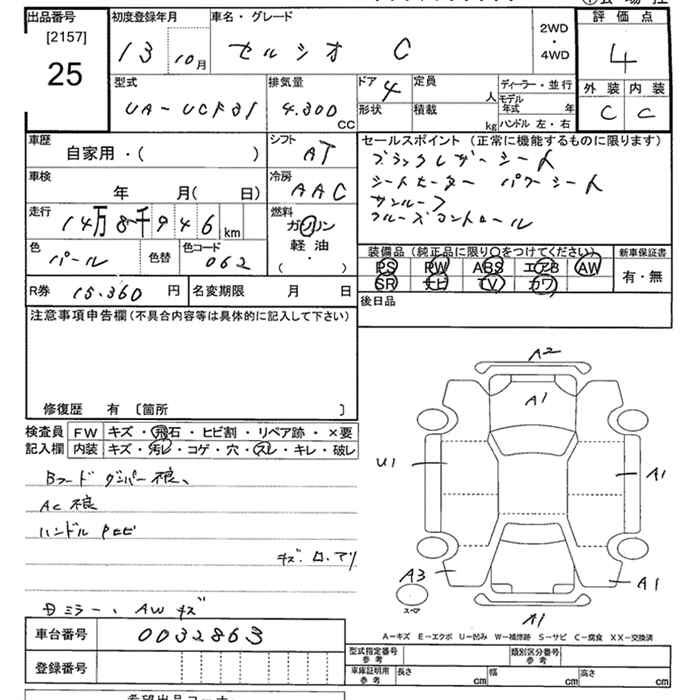 出品番号 初度登録年月 車名・グレード 評価点
[2157]
25
13 10月 セルシオ C 2WD・4WD 4
型式 排気量 ドア 4 定員 人 ディーラー・並行 外装 内装
UA-UCF31 4.300 CC 形状 積載 kg モデル年式 年 C C
ハンドル 左・右
車歴 自家用・( ) シフト AT
セールスポイント (正常に機能するものに限ります)
ブラックレザーシート
シートヒーター パワーシート
サンルーフ
クルーズコントロール
車検 年 月(日) 冷房 AAC
走行 14万8千946km 燃料 ガソリン
軽油・
( )
色 パール 色替 色コード 062
装備品 (純正品に限り○をつけてください) 新車保証書
PS PW ABS エアB AW 有・無
SR ナビ TV カワ
R券 15.360円 名変期限 月 日
後日品
注意事項申告欄 (不具合内容等は具体的に記入して下さい)
修復歴 有 〔箇所 〕
検査員 FW キズ・飛石・ヒビ割・リペア跡・×要
記入欄 内装 キズ・汚レ・コゲ・穴・スレ・キレ・破レ
Bフード ダンパー不良、
AC 不良
ハンドル
キズ.
ミラー、AWキズ
A2
A1
U1 A1
A3 A1
スペア
A1
A-キズ E-エクボ U-凹み W-補修跡 S-サビ C-腐食 XX-交換済
車台番号 0032863
登録番号
型式指定番号 参考 類別区分番号 参考
車庫証明用 参考 長さ cm 幅 cm 高さ cm